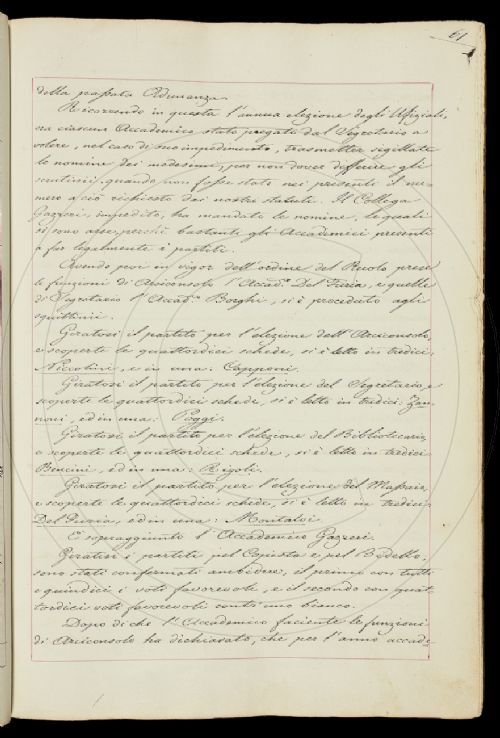 61
della passata Adunanza.
Ricorrendo in questa l'annua elezione degli Ufiziali,
era ciascun Accademico stato pregato dal Segretario a
volere, nel caso di suo impedimento, trasmetter sigillate
le nomine dei medesimi, per non dover differire gli
scuttinii, quando non fosse stato nei presenti il nu-
mero a ciò richiesto dai nostri statuti. Il Collega
Gazzeri, impedito, ha mandato le nomine, le quali
si sono arse, perchè bastanti gli Accademici presenti
a far legalmente i partiti.
Avendo poi in vigor dell'ordine del Ruolo prese
le funzioni di Arciconsolo l'Accad.º Del Furia, e quelle
di Segretario l'Accad.º Borghi, si è proceduto agli
squittinii.
Giratosi il partito per l'elezione dell'Arciconsolo,
e scoperte le quattordici schede, si è letto in tredici,
Niccolini, e in una: Capponi.
Giratosi il partito per l'elezione del Segretario, e
scoperte le quattordici schede, si è letto in tredici: Zan-
noni, ed in una: Poggi.
Giratosi il partito per l'elezione del Bibliotecario,
e scoperte le quattordici schede, si è letto in tredici
Bencini, ed in una: Rigoli.
Giratosi il partito per l'elezione del Massaio,
e scoperte le quattordici schede, si è letto in tredici
Del Furia, ed in una: Montalvi
È sopraggiunto l'Accademico Gazzeri.
Giratisi i partiti pel Copista e pel Bidello,
sono stati confermati ambedue, il primo con tutti
e quindici i voti favorevoli, e il secondo con quat-
tordici voti favorevoli contr'uno bianco.
Dopo di che l'Accademico faciente le funzioni
di Arciconsolo ha dichiarato, che per l'anno accade-